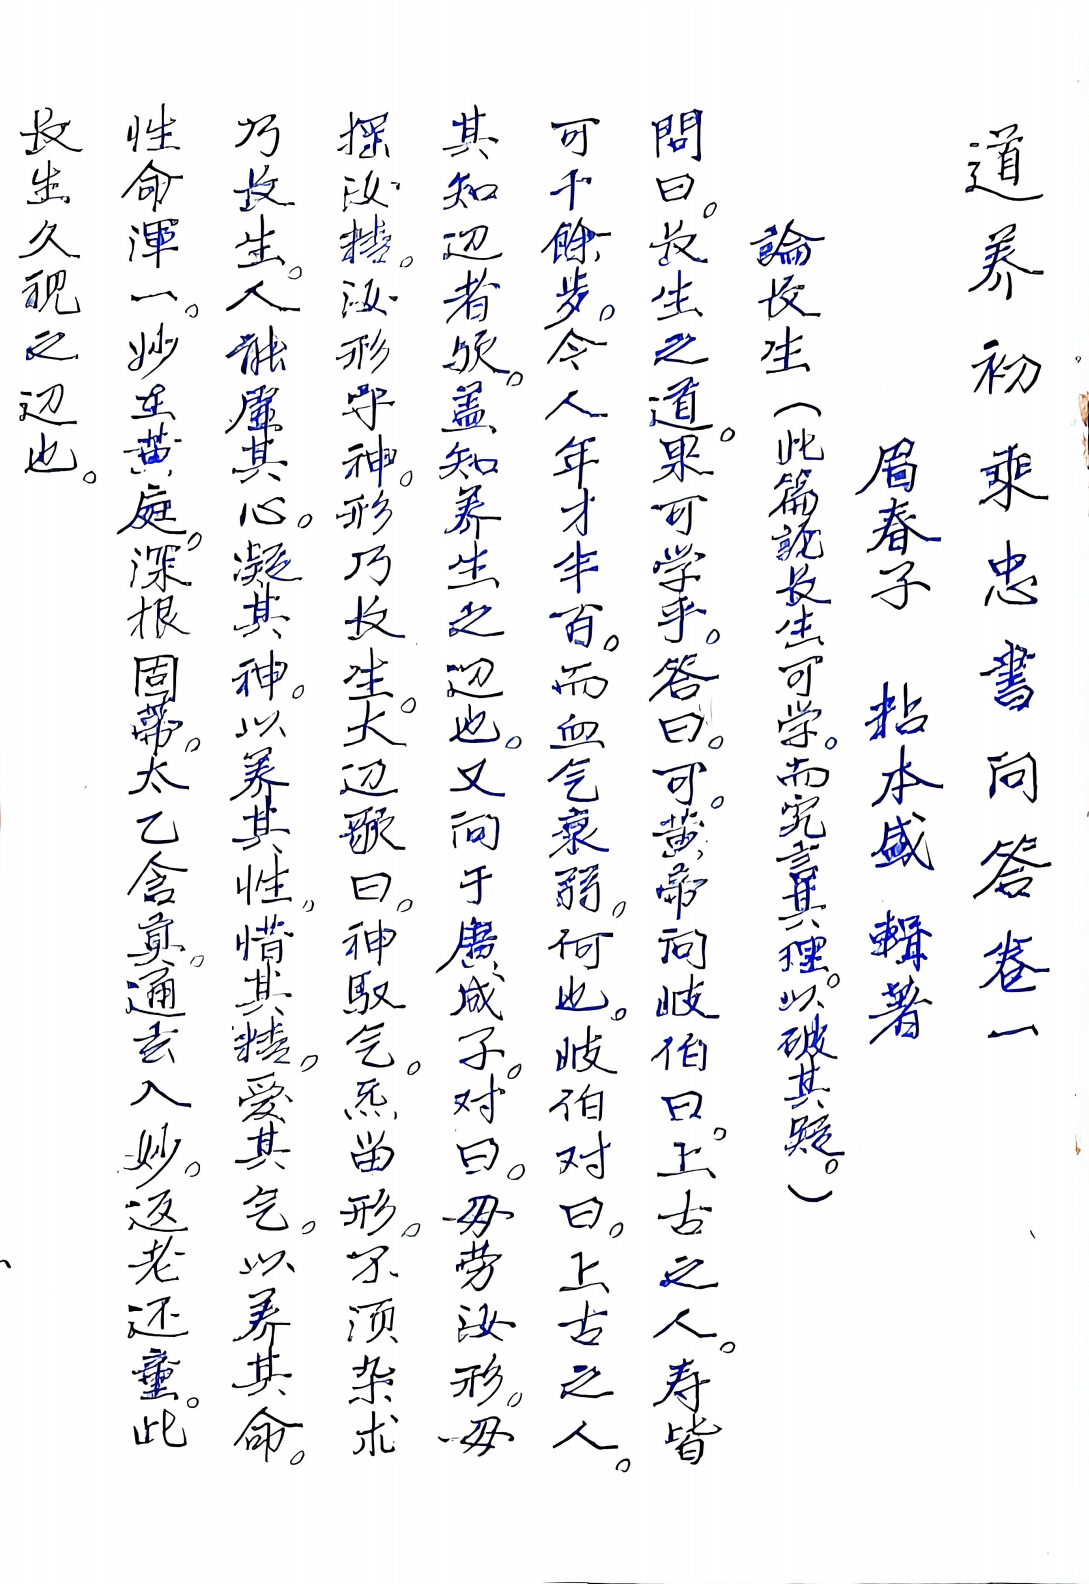 道养初乘忠書问答卷一
眉春子 粘本盛 輯著
論长生（此篇説长生可学。而究言其理。以破其疑。）
問曰。长生之道。果可学乎。答曰。可。黄帝问岐伯曰。上古之人。寿皆
可千餘步。今人年才半百。而血气衰弱。何也。岐伯对曰。上古之人。
其知辺者欤。盖知养生之辺也。又问于廣成子。对曰。毋劳汝形。毋
摇汝精。汝形守神。形乃长生。大辺歌曰。神驭气。炁留形。不须杂术
乃长生。人能虛其心。凝其神。以养其性，惜其精。爱其气。以养其命。
性命渾一。妙在黄庭。深根固蒂。太乙含真。通玄入妙。返老还童。此
长生久视之辺也。